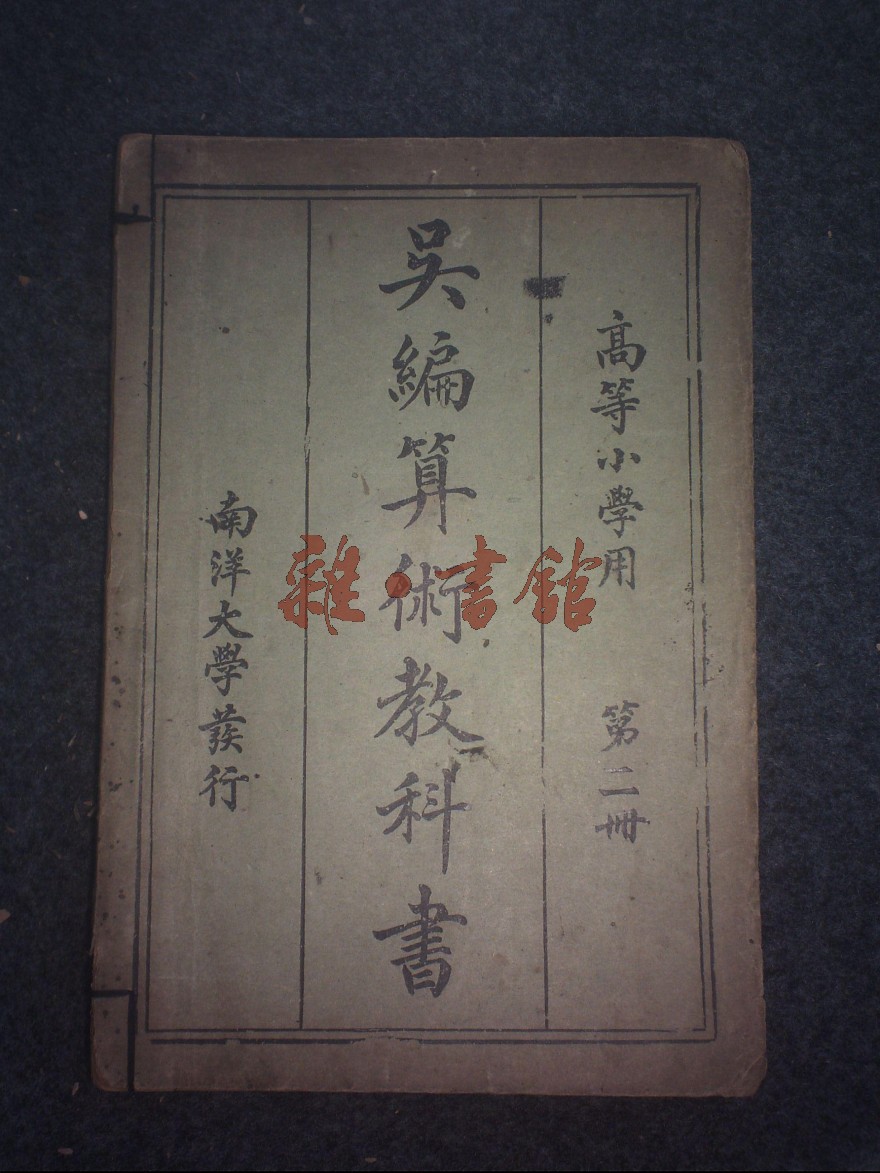 高等小學用 第二冊
吳編算術教科書
南洋大學發行
雜·書館